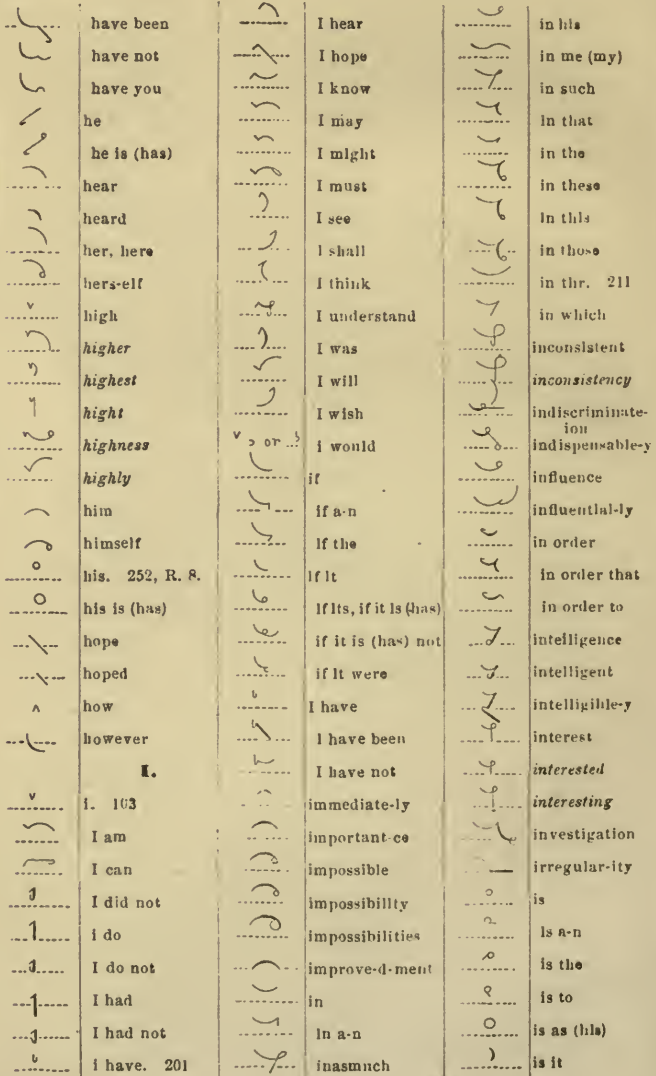 have been
have not
have you
he
he is (has)
hear
heard
her, here
hers-elf
high
higher
highest
hight
highness
highly
him
himself
his. 252, R. 8.
his is (has)
hope
hoped
how
however
I.
i. 103
I am
I can
I did not
i do
I do not
I had
I had not
i have. 201
I hear
I hope
I know
I may
I might
I must
I see
I shall
I think
I understand
I was
I will
I wish
or
i would
if
if a-n
If the
If It
If Its, if it Is (has)
if it is (has) not
if It were
I have
I have been
I have not
immediate-ly
important-ce
impossible
impossibility
impossibilities
improve-d-ment
in
In a-n
inasmuch
in his
in me (my)
in such
in that
in the
in these
In this
in those
in thr. 211
in which
inconsistent
inconsistency
indiscriminate-
ion
indispensable-y
influence
influential-ly
in order
in order that
in order to
intelligence
intelligent
intelligible-y
interest
interested
interesting
investigation
irregular-ity
is
Is a-n
is the
is to
is as (his)
is it